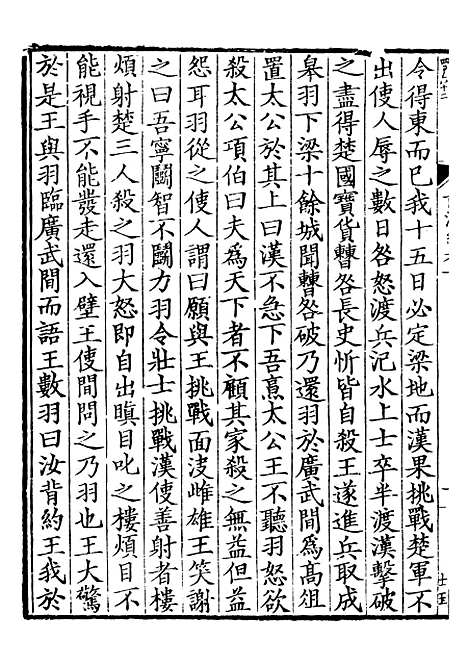 令得東而已我十五日必定梁地而漢果挑戰楚軍不
出使人辱之數日咎怒渡兵汜水上士卒半渡漢擊破
之盡得楚國寶貨曹咎長史忻皆自殺王遂進兵取成
皋羽下梁十餘城聞曹咎破乃還羽於廣武間爲高俎
置太公於其上曰漢不急下吾烹太公王不聽羽怒欲
殺太公項伯曰夫爲天下者不顧其家殺之無益但益
怨耳羽從之使人謂曰願與王挑戰面決雌雄王笑謝
之曰吾寧鬭智不鬭力羽令壯士挑戰漢使善射者樓
煩射楚三人殺之羽大怒即自出瞋目叱之樓煩目不
能視手不能發走還入壁王使間問之乃羽也王大驚
於是王與羽臨廣武間而語王數羽曰汝背約王我於